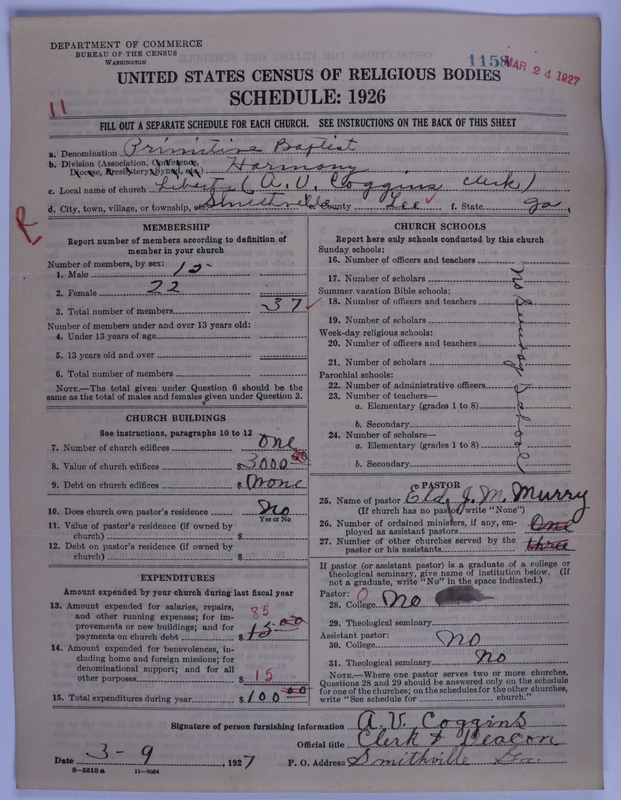 DEPARTMENT OF COMMERCE
BUREAU OF THE CENSUS
WASHINGTON
1158 MAR 24 1927
UNITED STATES CENSUS OF RELIGIOUS BODIES
SCHEDULE: 1926
11
FILL OUT A SEPARATE SCHEDULE FOR EACH CHURCH. SEE INSTRUCTIONS ON THE BACK OF THIS SHEET
a. Denomination Primitive Baptist
b. Division (Association, Conference, Diocese, Presbytery, Synod, etc.) Harmony
c. Local name of church Liberty (A. V. Coggins Clerk)
d. City, town, village, or township, etc. Smithville e. County Lee f. State Ga.
R
MEMBERSHIP
Report number of members according to definition of
member in your church
Number of members, by sex:
1. Male 15
2. Female 22
3. Total number of members 37
Number of members under and over 13 years old:
4. Under 13 years of age
5. 13 years old and over
6. Total number of members
NOTE.—The total given under Question 6 should be the
same as the total of males and females given under Question 3.
CHURCH BUILDINGS
See instructions, paragraphs 10 to 12
7. Number of church edifices One
8. Value of church edifices $3000.00
9. Debt on church edifices $None
10. Does church own pastor's residence No
Yes or No
11. Value of pastor's residence (if owned by
church) $
12. Debt on pastor's residence (if owned by
church) $
EXPENDITURES
Amount expended by your church during last fiscal year
13. Amount expended for salaries, repairs,
and other running expenses; for im-
provements or new buildings; and for
payments on church debt $ 85 15.00
14. Amount expended for benevolences, in-
cluding home and foreign missions; for
denominational support; and for all
other purposes $ 15
15. Total expenditures during year $100.00
CHURCH SCHOOLS
Report here only schools conducted by this church
Sunday schools:
16. Number of officers and teachers
17. Number of scholars
Summer vacation Bible schools:
18. Number of officers and teachers
19. Number of scholars
Week-day religious schools:
20. Number of officers and teachers
21. Number of scholars
Parochial schools:
22. Number of administrative officers
23. Number of teachers—
a. Elementary (grades 1 to 8)
b. Secondary
24. Number of scholars—
a. Elementary (grades 1 to 8)
b. Secondary
No Sunday School
PASTOR
25. Name of pastor Eld. J. M. Murry
(If church has no pastor, write "None")
26. Number of ordained ministers, if any, em-
ployed as assistant pastors One
27. Number of other churches served by the
pastor or his assistants three
If pastor (or assistant pastor) is a graduate of a college or
theological seminary, give name of institution below. (If
not a graduate, write "No" in the space indicated.)
Pastor: 0
28. College No
29. Theological seminary
Assistant pastor:
30. College No
31. Theological seminary No
NOTE.—Where one pastor serves two or more churches,
Questions 28 and 29 should be answered only on the schedule
for one of the churches; on the schedules for the other churches,
write "See schedule for church."
Signature of person furnishing information A. V. Coggins
Official title Clerk & Deacon
Date 3-9, 1927 P. O. Address Smithville Ga.
8—5518 a 11—9054